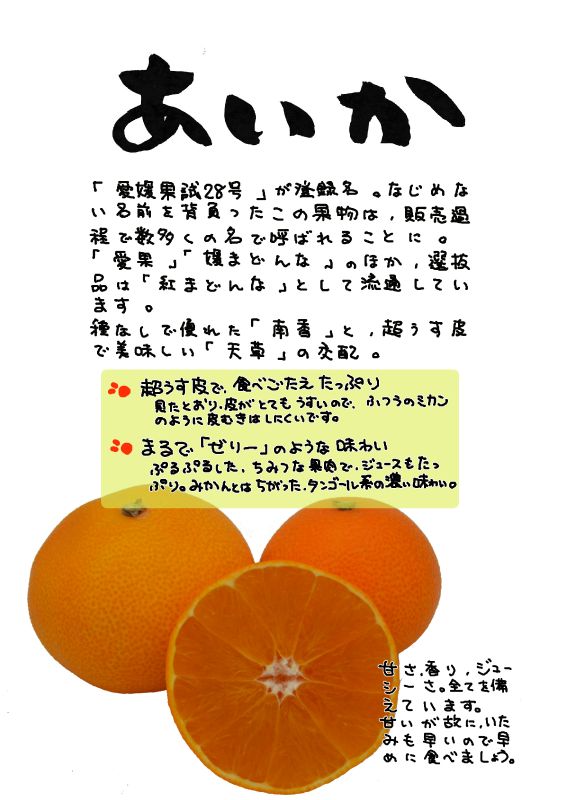 あいか
「愛媛果試28号」が登録名。なじめな
い名前を背負ったこの果物は，販売過
程で数多くの名で呼ばれることに。
「愛果」「媛まどんな」のほか，選抜
品は「紅まどんな」として流通してい
ます。
種なしで優れた「南香」と，超うす皮
で美味しい「天草」の交配。
超うす皮で、食べごたえたっぷり
見たとおり、皮がとてもうすいので、ふつうのミカン
のように皮むきはしにくいです。
まるで「ゼリー」のような味わい
ぷるぷるした、ちみつな果肉で、ジュースもたっ
ぷり。みかんとはちがった、タンゴール系の濃い味わい。
甘さ，香り，ジュー
シーさ。全てを備
えています。
甘いが故に，いた
みも早いので早
めに食べましょう。